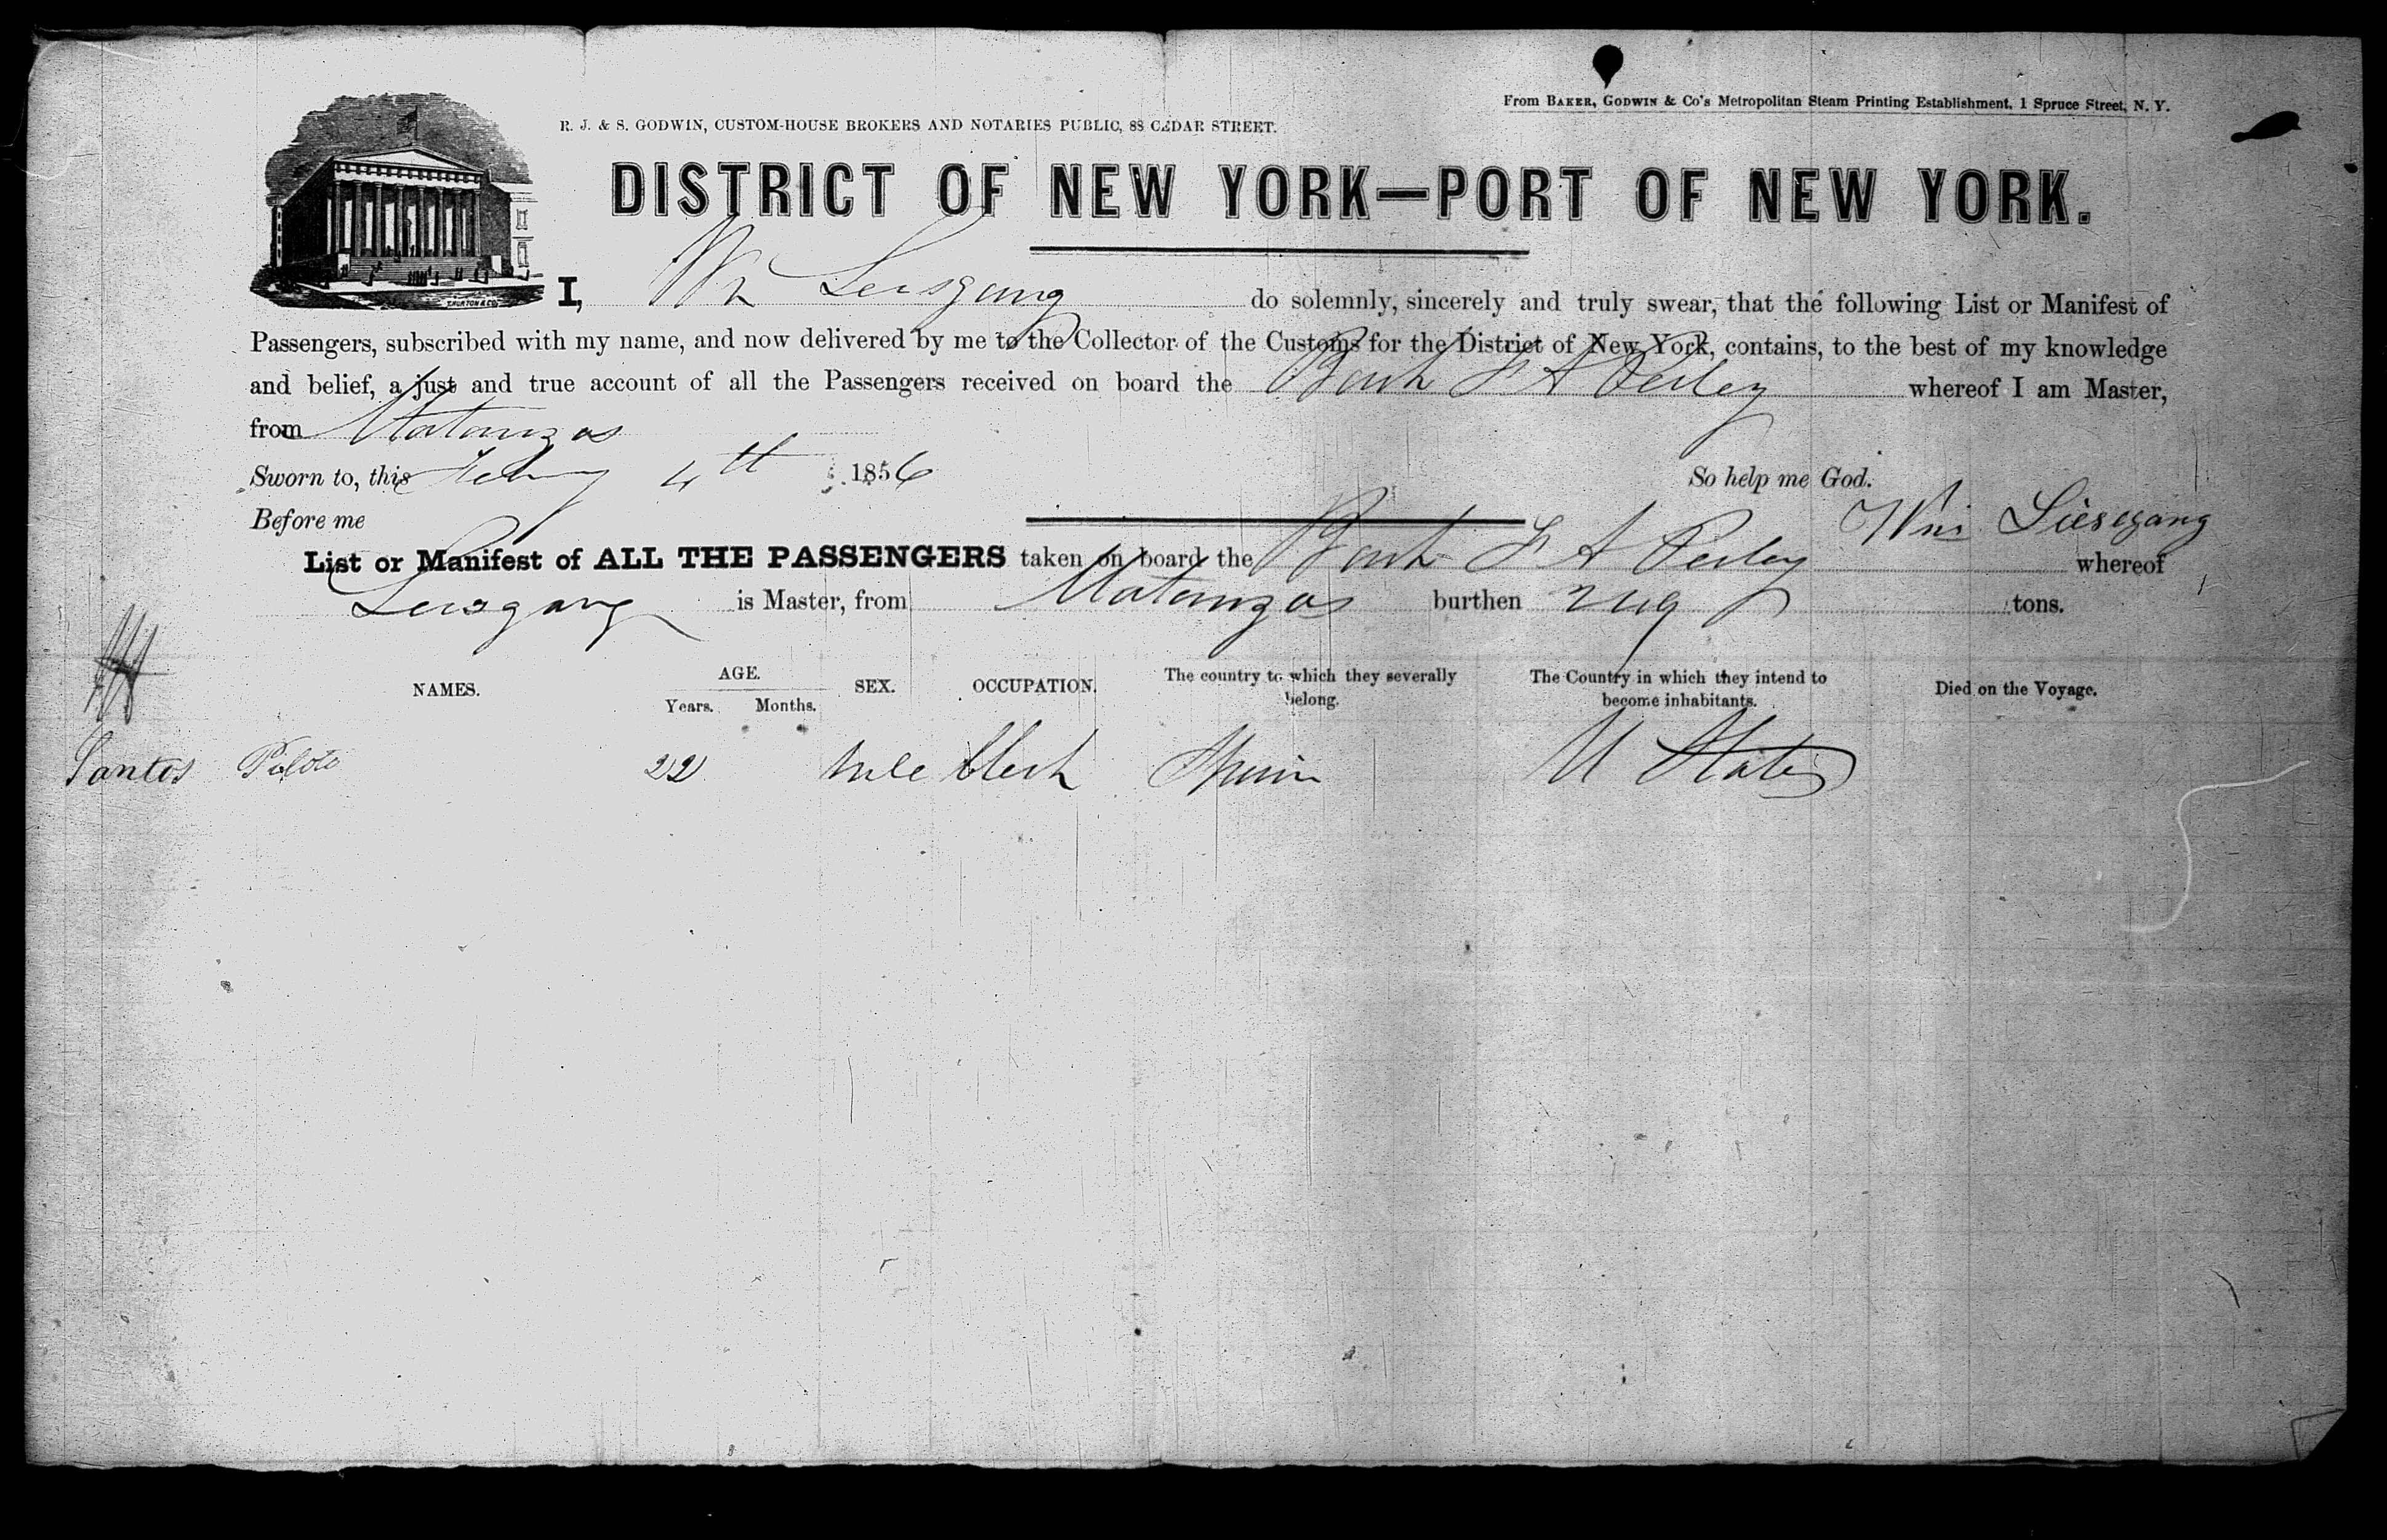 From BAKER, GODWIN & Co's Metropolitan Steam Printing Establishment, 1 Spruce Street, N. Y.
R. J. & S. GODWIN, CUSTOM-HOUSE BROKERS AND NOTARIES PUBLIC, 88 CEDAR STREET.
DISTRICT OF NEW YORK—PORT OF NEW YORK.
I, Wm Leisgang do solemnly, sincerely and truly swear, that the following List or Manifest of
Passengers, subscribed with my name, and now delivered by me to the Collector of the Customs for the District of New York, contains, to the best of my knowledge
and belief, a just and true account of all the Passengers received on board the Bark F A Perley whereof I am Master,
from Matanzas
Sworn to, this Feby 4th 1856 So help me God.
Before me Wm Liesegang
List or Manifest of ALL THE PASSENGERS taken on board the Bark F A Perley whereof
Leisgang is Master, from Matanzas burthen tons.
NAMES. AGE. Years. Months. SEX. OCCUPATION. The country to which they severally belong. The Country in which they intend to become inhabitants. Died on the Voyage.
Santos Piloto 22 Male Clerk Spain U States